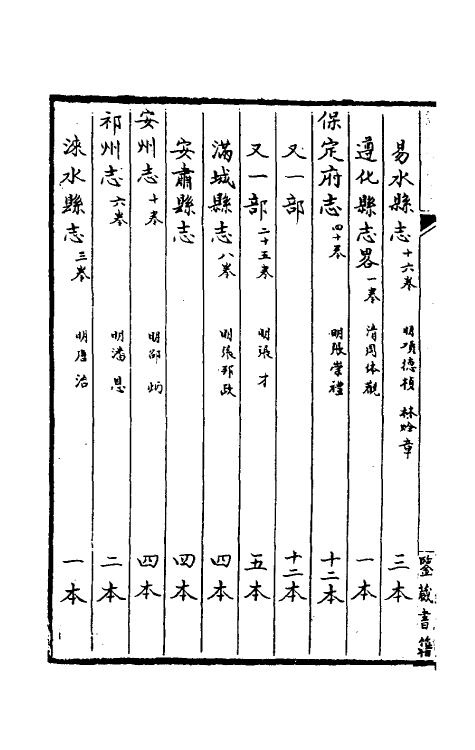 易水縣志十六卷 明項德楨 林 章 三本
遵化縣志畧一卷 清周体觀 一本
保定府志四十卷 明張崇禮 十二本
又一部 十二本
又一部二十五卷 明張才 五本
滿城縣志八卷 明張邦政 四本
安肅縣志 四本
安州志十卷 明邵炳 四本
祁州志六卷 明潘恩 二本
淶水縣志三卷 明唐治 一本
鑒藏書籍